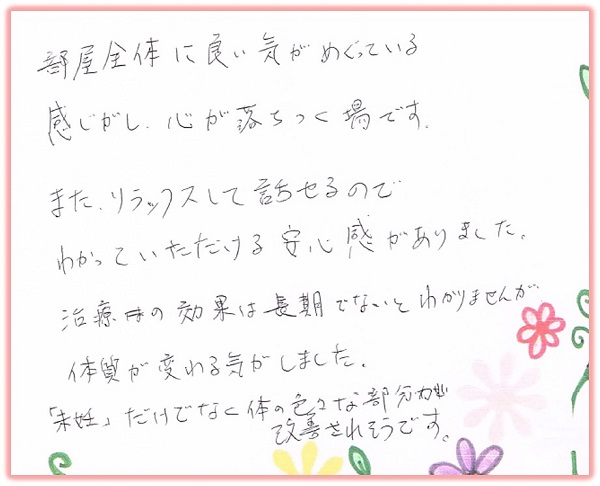 部屋全体に良い気がめぐっている
感じがし、心が落ちつく場です。
また、リラックスして話せるので
わかっていただける安心感がありました。
治療の効果は長期でないとわかりませんが
体質が変わる気がしました。
「未妊」だけでなく体の色々な部分が
改善されそうです。